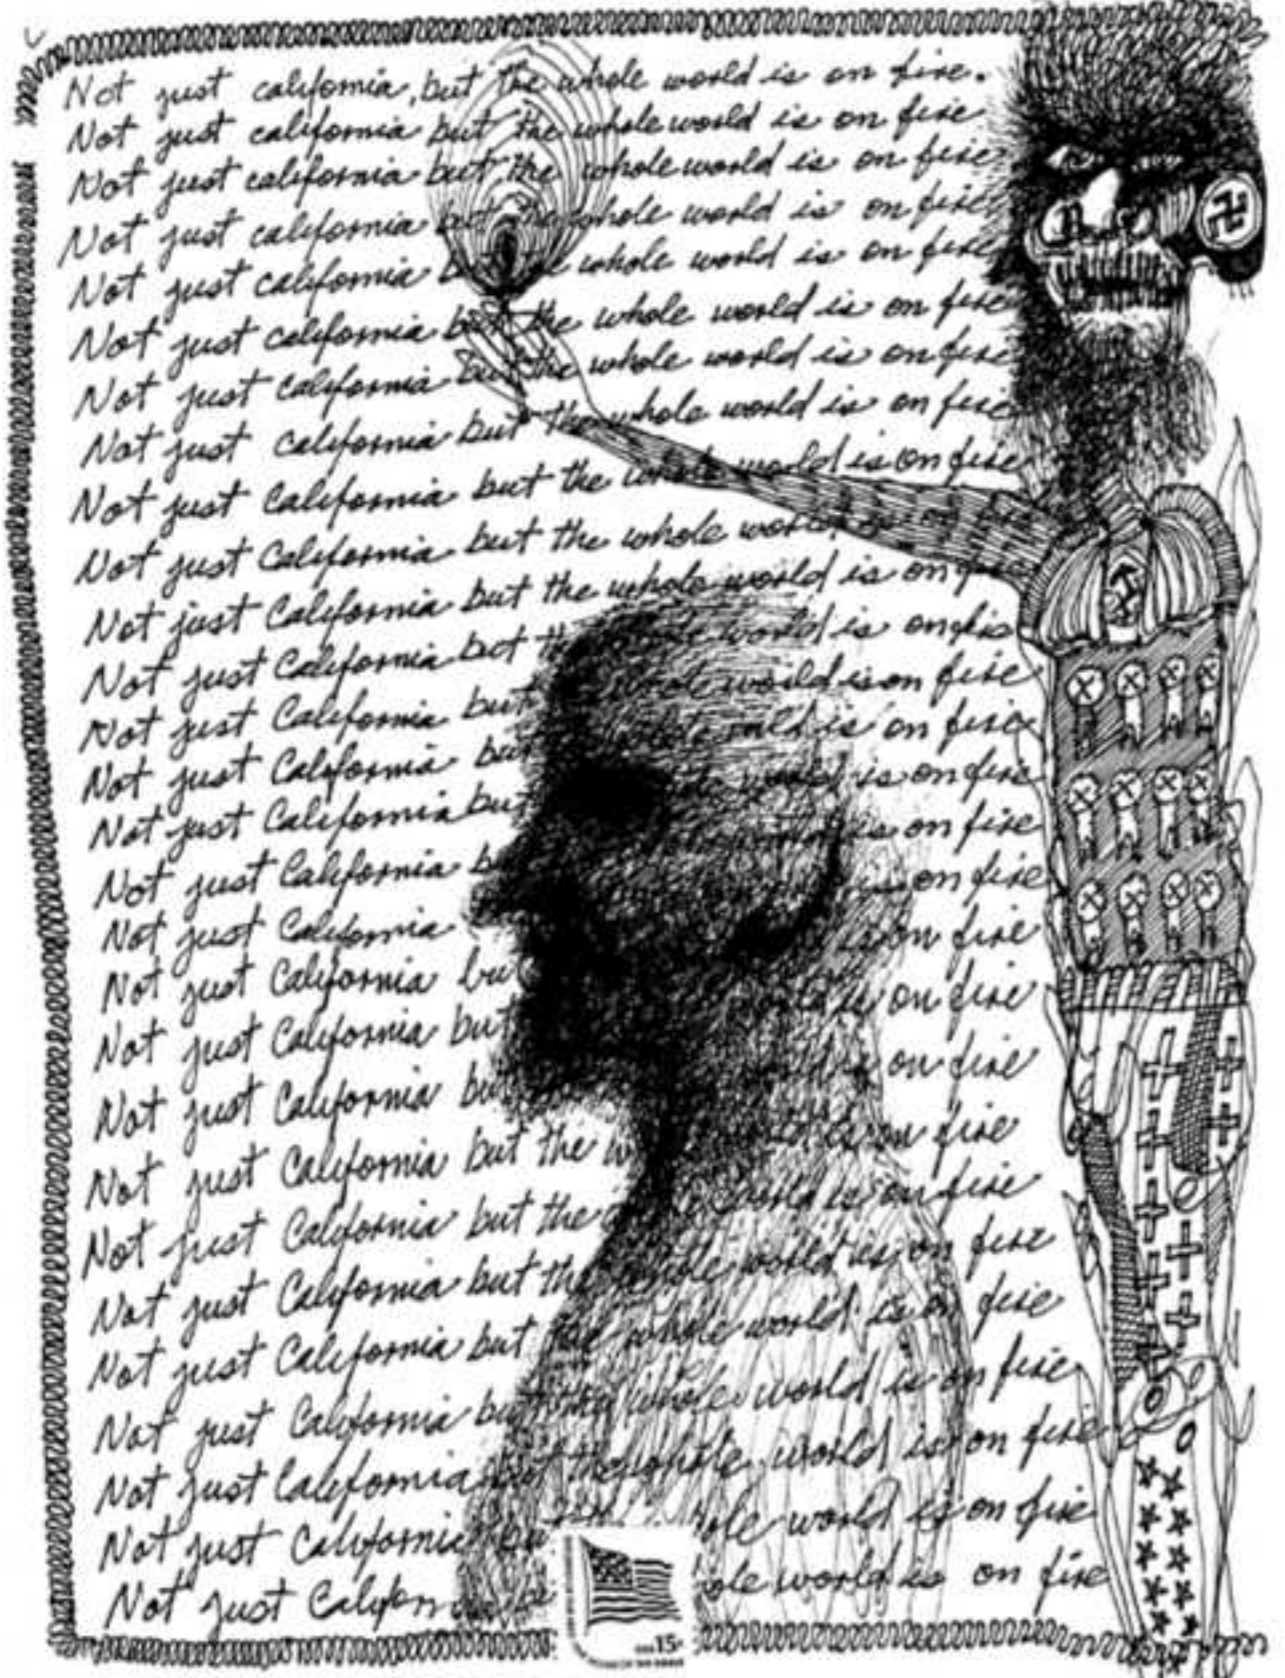 Not just california, but the whole world is on fire.
Not just california but the whole world is on fire
Not just california but the whole world is on fire
Not just california but the whole world is on fire
Not just california but the whole world is on fire
Not just california but the whole world is on fire
Not just california but the whole world is on fire
Not just california but the whole world is on fire
Not just California but the whole world is on fire
Not just California but the whole world is on fire
Not just California but the whole world is on fire
Not just California but the whole world is on fire
Not just California but whole world is on fire
Not just California but whole world is on fire
Not just California but the world is on fire
Not just California world is on fire
Not just California is on fire
Not just California but is on fire
Not just California but world is on fire
Not just California but is on fire
Not just California but the is on fire
Not just California but the world is on fire
Not just California but the whole world is on fire
Not just California but the whole world is on fire
Not just California but the whole world is on fire
Not just California but the whole world is on fire
Not just California whole world is on fire
Not just whole world is on fire
15c